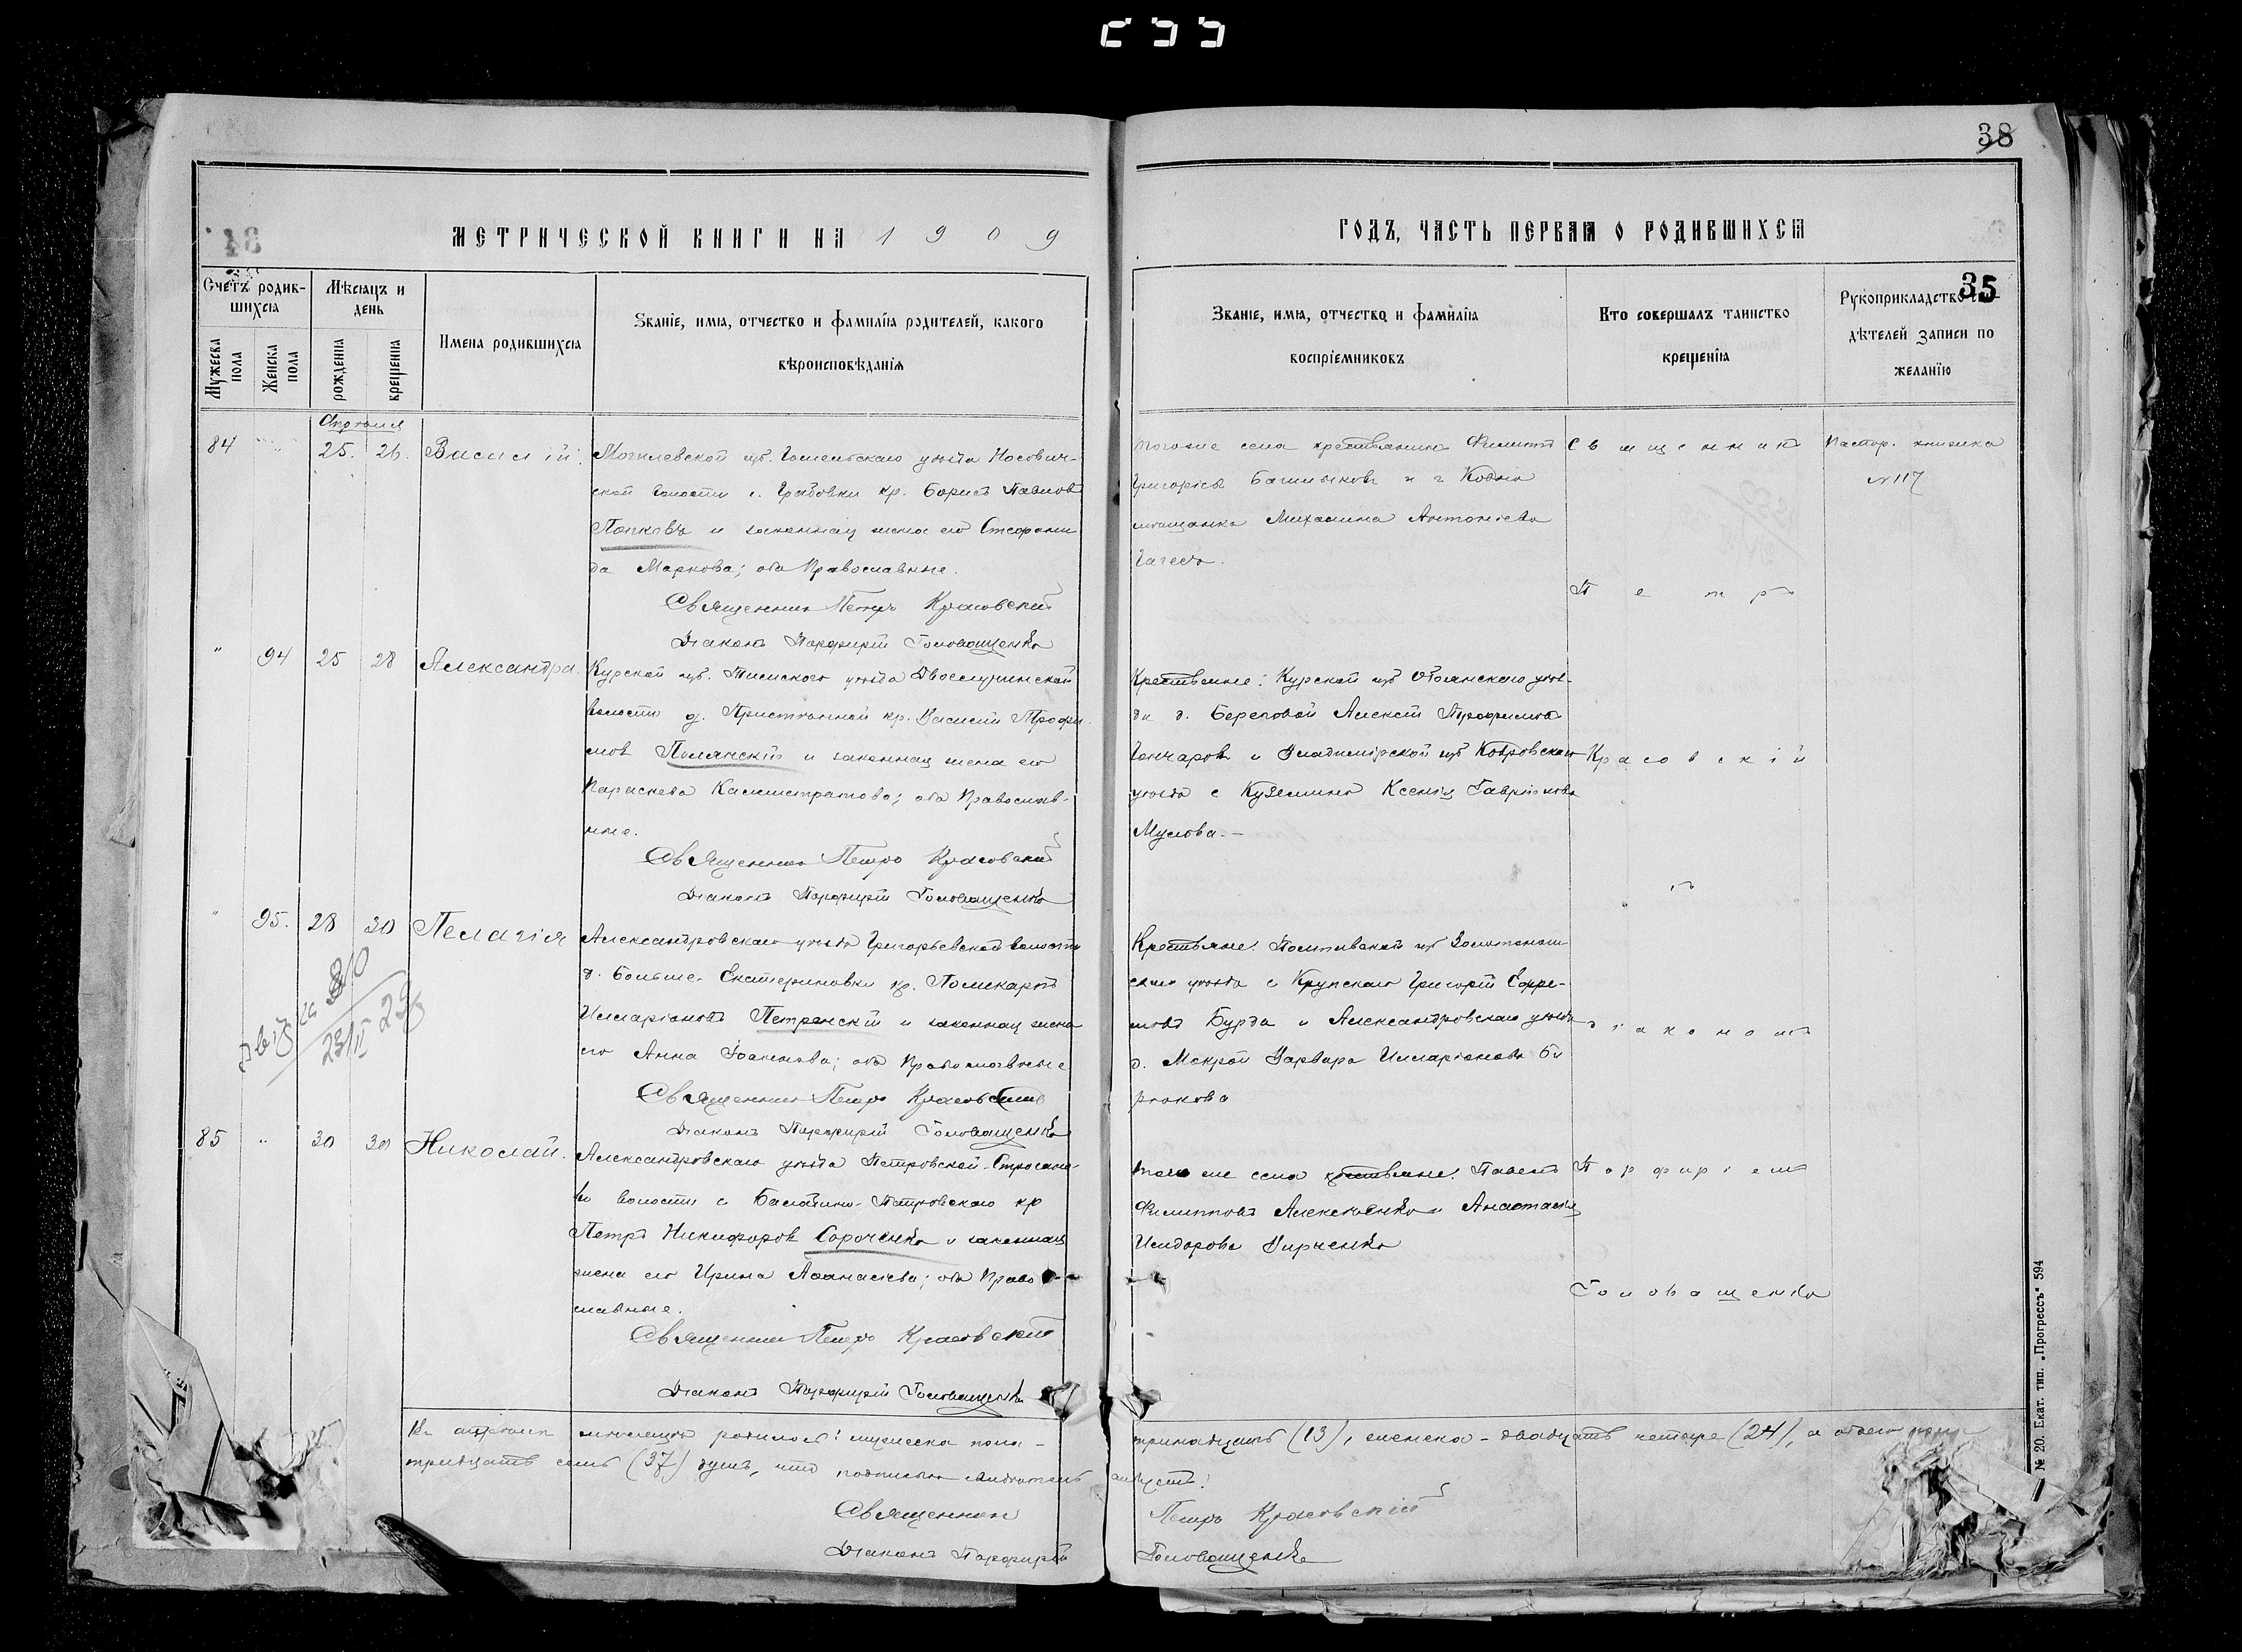 38
МЕТРИЧЕСКОЙ КНИГИ НА 1909
ГОДЪ, ЧАСТЬ ПЕРВАЯ О РОДИВШИХСЯ
35
Счетъ родив-
шихся
Мужеска пола
Женска пола
Мѣсяцъ и
день
рожденія
крещенія
Имена родившихся
Званіе, имя, отчество и фамилія родителей, какого
вѣроисповѣданія
Званіе, имя, отчество и фамилія
воспріемниковъ
Кто совершалъ таинство
крещенія
Рукоприкладство
дѣтелей записи по
желанію
Апрѣля
84 25. 26. Василій.
Могилевской губ. Гомельскаго уѣзда Носович-
ской волости с. Грабовки кр. Борисъ Павловъ
Папковъ и законная жена его Стефани
да Маркова; оба Православные.
Священникъ Петръ Красовскій
Діаконъ Порфирій Головащенко
тогоже села крестьянинъ Филиппъ
Григорьевъ и г. Ковно
мѣщанка Михалина Антоніева
Священникъ
Петръ
Паспор. книжка
№117
" 94 25 28 Александра.
Курской губ. Тимскаго уѣзда
волости д. Пристѣнной кр. Василій Трофи
мовъ Полянскій и законная жена его
Параскева Каллистратова; оба Православ-
ные.
Священникъ Петръ Красовскій
Діаконъ Порфирій Головащенко
Крестьяне: Курской губ Обоянскаго уѣз-
да д. Береговой Алексѣй
Гончаровъ и Владимірской губ Ковровскаго
уѣзда с Кузьмино Ксенія Гаврилова
Мулова.—
Красовскій
съ
" 95. 28 30 Пелагія
Александровскаго уѣзда Григорьевской волости
д. Больше-Екатериновки кр. Поликарпъ
Илларіоновъ Петренскій и законная жена
его Анна Іоаннова; оба Православные
Священникъ Петръ Красовскій
Діаконъ Порфирій Головащенко
Крестьяне: Полтавской губ Золотонош
скаго уѣзда с Крупскаго Григорій Ефре-
мовъ Бурда и Александровскаго уѣзда
д. Мокрой Варвара Илларіонова Би
рюкова
діакономъ
85 " 30 30 Николай.
Александровскаго уѣзда Петровской-
волости с Балабино-Петровскаго кр
Петръ Никифоровъ Сороченко и законная
жена его Ирина Аѳанасіева; оба Право
славные.
Священникъ Петръ Красовскій
Діаконъ Порфирій Головащенко
того же села крестьяне: Павелъ
Филипповъ Алексѣенко и Анастасія
Исидорова Кирченко
Порфиріемъ
Головащенко
Въ апрѣлѣ мѣсяцѣ родилось: мужеска пола - тринадцать (13), женска - двадцать четыре (24), а обоего пола
тридцать семь (37) душъ, что подписью
Священникъ Петръ Красовскій
Діаконъ Порфирій Головащенко
№ 20. Екат. тип. „Прогрессъ" 594